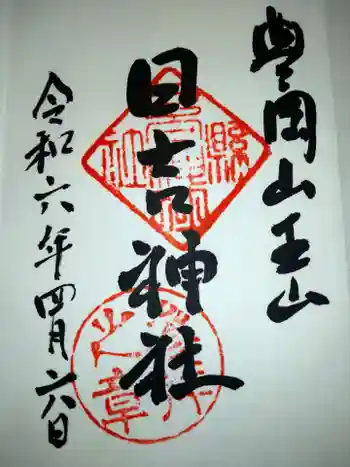 豊岡山王山
日吉神社
令和六年四月六日